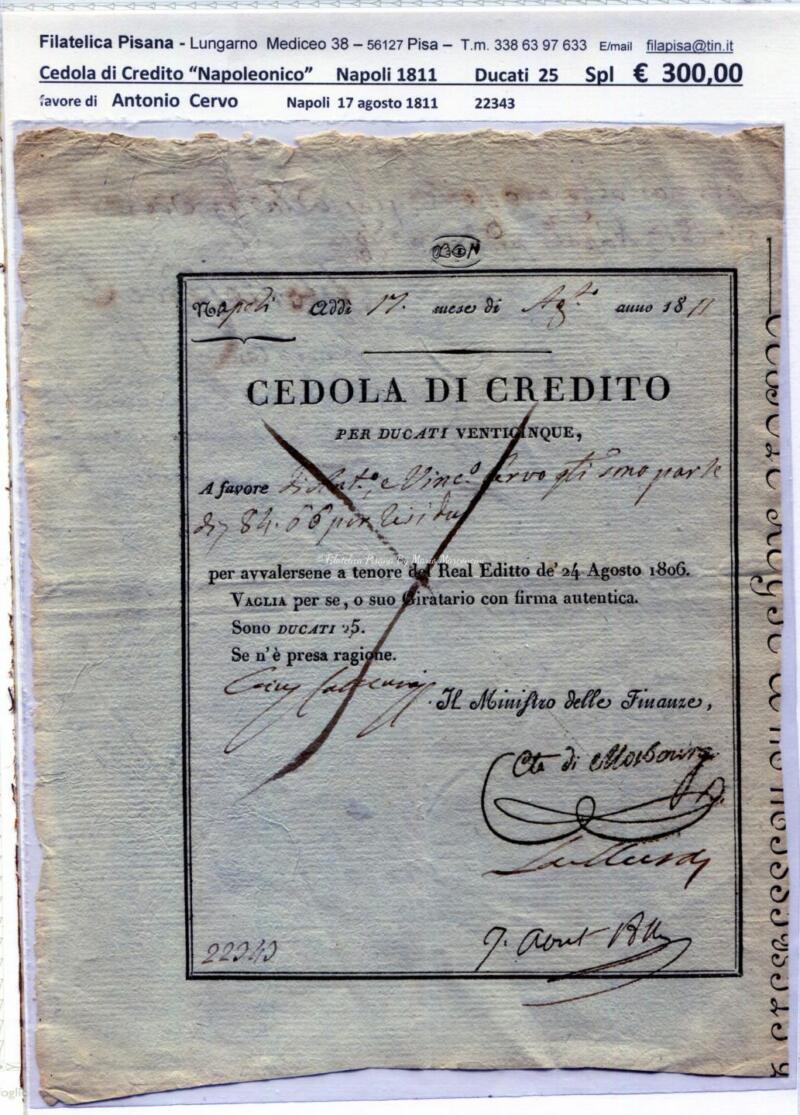 Filatelica Pisana - Lungarno Mediceo 38 – 56127 Pisa – T.m. 338 63 97 633 E/mail filapisa@tin.it
Cedola di Credito “Napoleonico” Napoli 1811 Ducati 25 Spl € 300,00
favore di Antonio Cervo Napoli 17 agosto 1811 22343
Napoli Addì 17. mese di Ag.to anno 1811
CEDOLA DI CREDITO
PER DUCATI VENTICINQUE,
A favore di Ant.o, e Vinc.o Cervo gli sono parte
di 84.66 per
Filatelica Pisana by
per avvalersene a tenore del Real Editto de' 24 Agosto 1806.
VAGLIA per se, o suo Giratario con firma autentica.
Sono DUCATI 25.
Se n'è presa ragione.
Il Ministro delle Finanze,
Cte di Mosbourg
22343